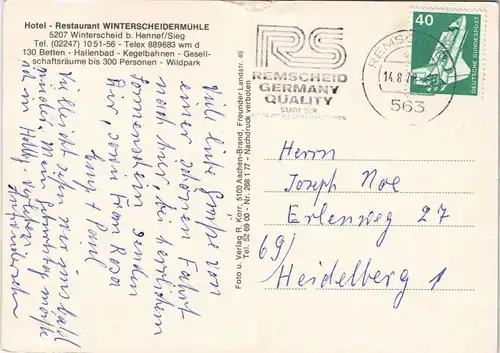 Hotel - Restaurant WINTERSCHEIDERMÜHLE
5207 Winterscheid b. Hennef/Sieg
Tel. (02247) 1051-56 - Telex 889683 wm d
130 Betten - Hallenbad - Kegelbahnen - Gesell-
schaftsräume bis 300 Personen - Wildpark
Viele liebe Grüße von
einer schönen Fahrt
nach hier, bei herrlichem
Sonnenschein senden
Dir, sowie Frau Rosa
Vielleicht sehn wir uns bald
Foto u. Verlag R. Korr, 5100 Aachen-Brand, Freunder Landstr. 40
Tel. 52 69 00 - Nr. 288 1 77 - Nachdruck verboten
RS
REMSCHEID
GERMANY
QUALITY
STADT DER
REMSCH
14.8.7
563
40
DEUTSCHE BUNDESPOST
Herrn
Joseph Noe
Erlenweg 27
69/
Heidelberg 1